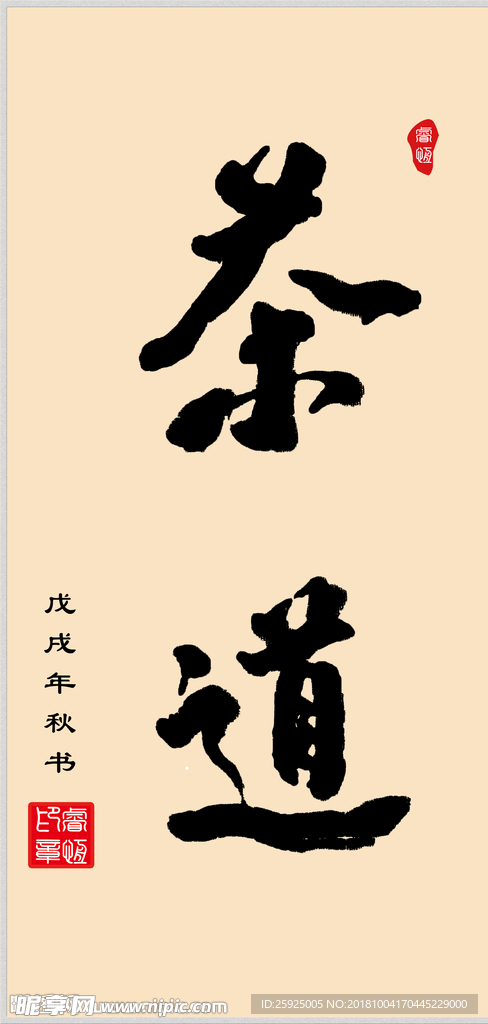 睿恆
茶道
戊戌年秋书
睿恆印章
昵享网 www.nipic.com
ID:25925005 NO:20181004170445229000